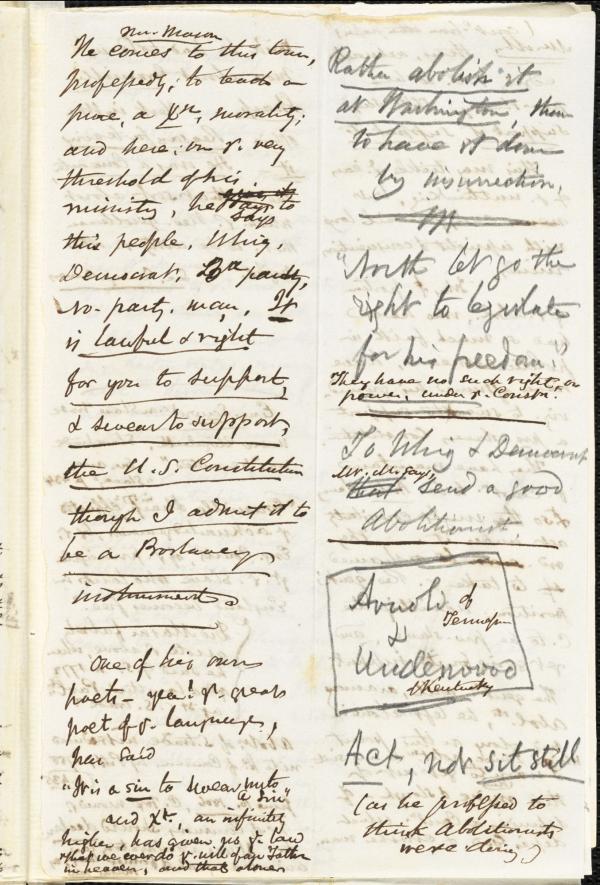 Mr. Mason
He comes to this town,
professedly, to teach a
pure, a Xn, morality;
and here, on ye very
threshold of his
ministry, he says to
this people, Whig,
Democrat, 3d party,
no-party, man, It
is lawful & right
for you to support,
& swear to support,
the U.S. Constitution
though I admit it to
be a Proslavery
instrument.
One of his own
poets – yea! ye great
poet of ye language,
has said
"It is a sin to swear unto
a sin"
and Xt., an infinitely
higher, has given us ye law
that we ever do ye will of our Father
in heaven, and that alone
Rather abolish it
at Washington, than
to have it done
by insurrection.
"North let go the
right to legislate
for his freedom."
They have no such right, or
power, under ye Constn.
To Whig & Democrat
Mr. M. says,
that send a good
Abolitionist.
Arnold of
Tennessee
&
Underwood
of Kentucky
Act, not sit still
(as he professed to
think Abolitionists
were doing)